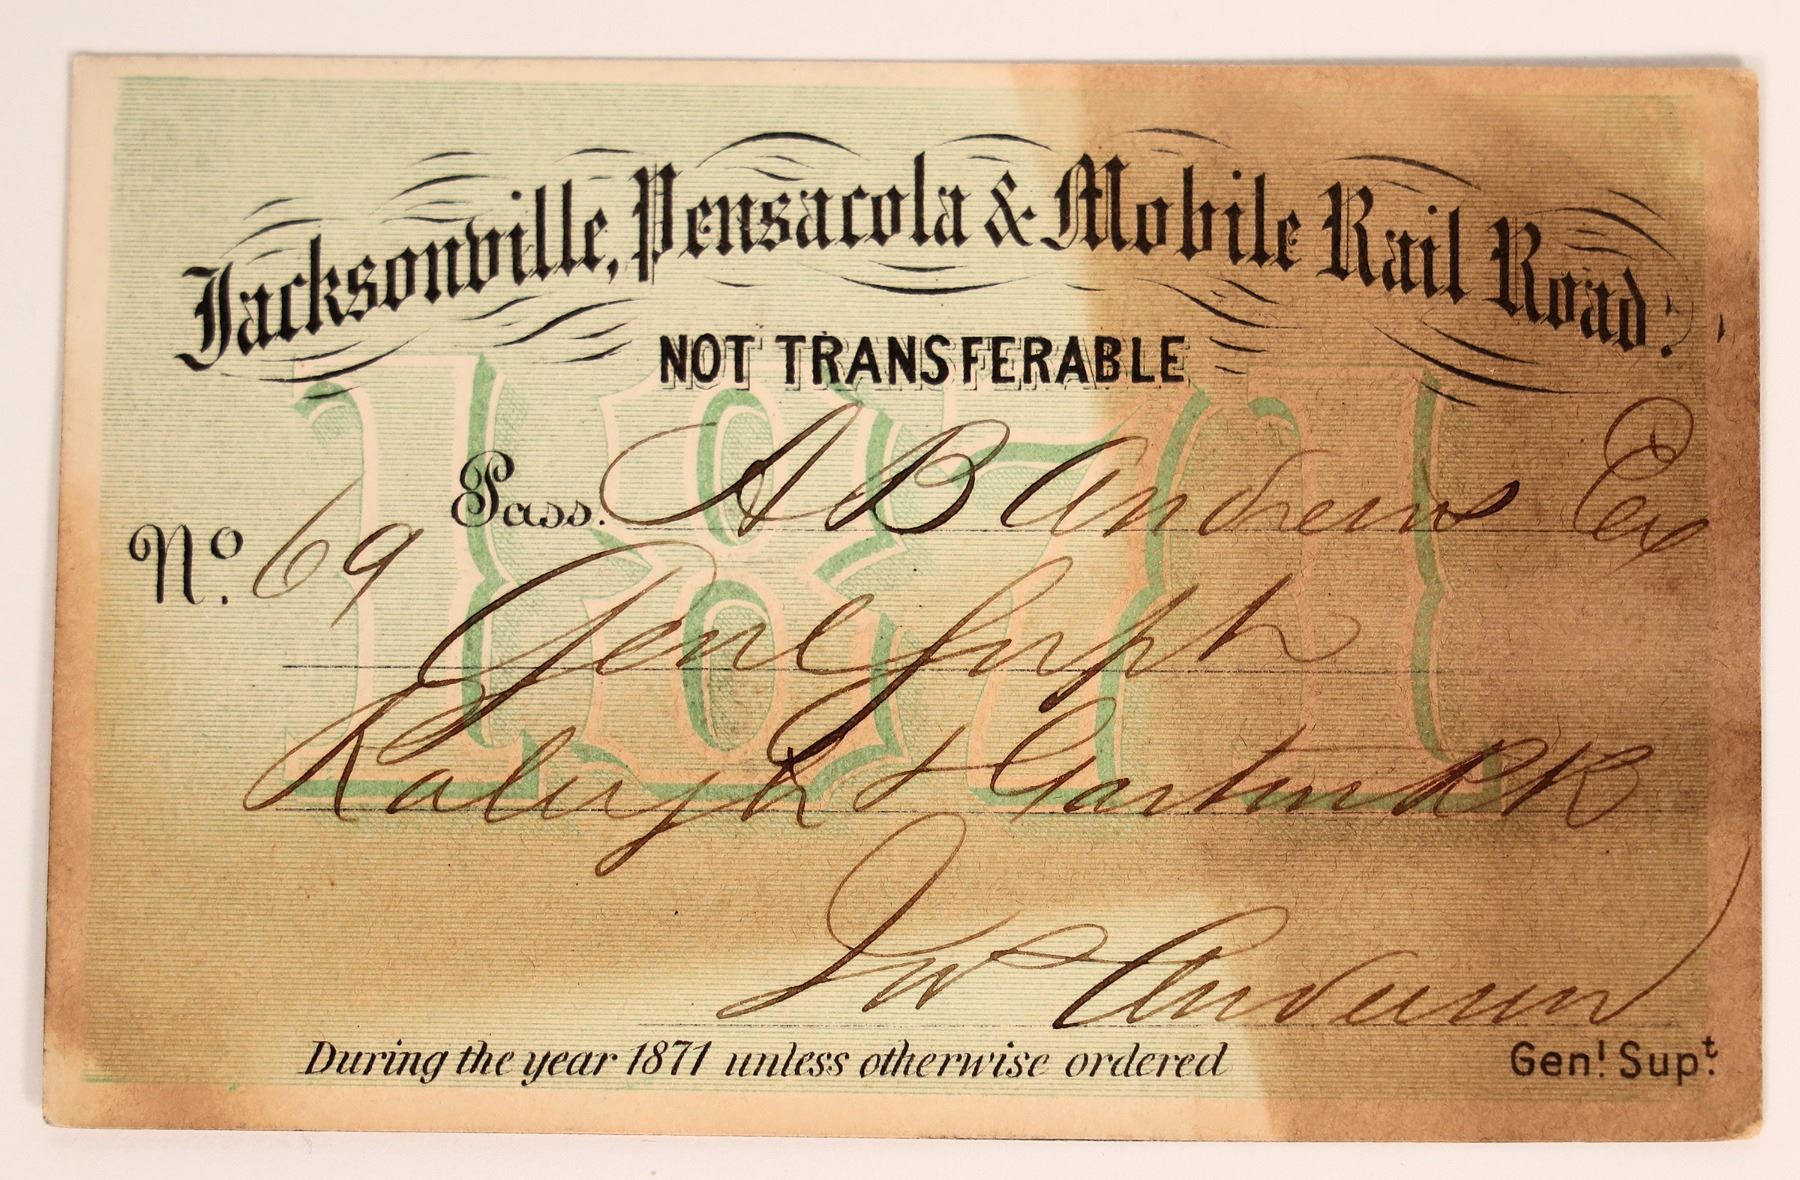 Jacksonville, Pensacola & Mobile Rail Road.
NOT TRANSFERABLE
1871
Pass. A B Andrews Ex
No. 69
Genl Supt
Raleigh & Gaston R R
Anderson
During the year 1871 unless otherwise ordered Genl Supt.